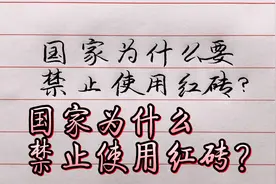 国家为什么要
禁止使用红砖?
国家为什么
禁止使用红砖?